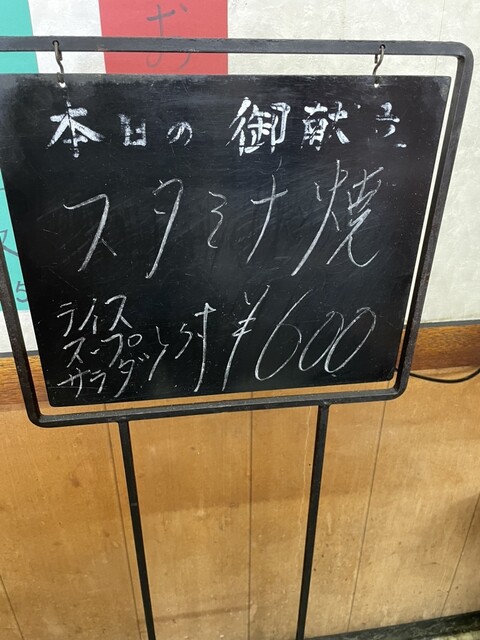 お
本日の 御献立
スタミナ焼
ライス
スープ
サラダ 付 ¥600